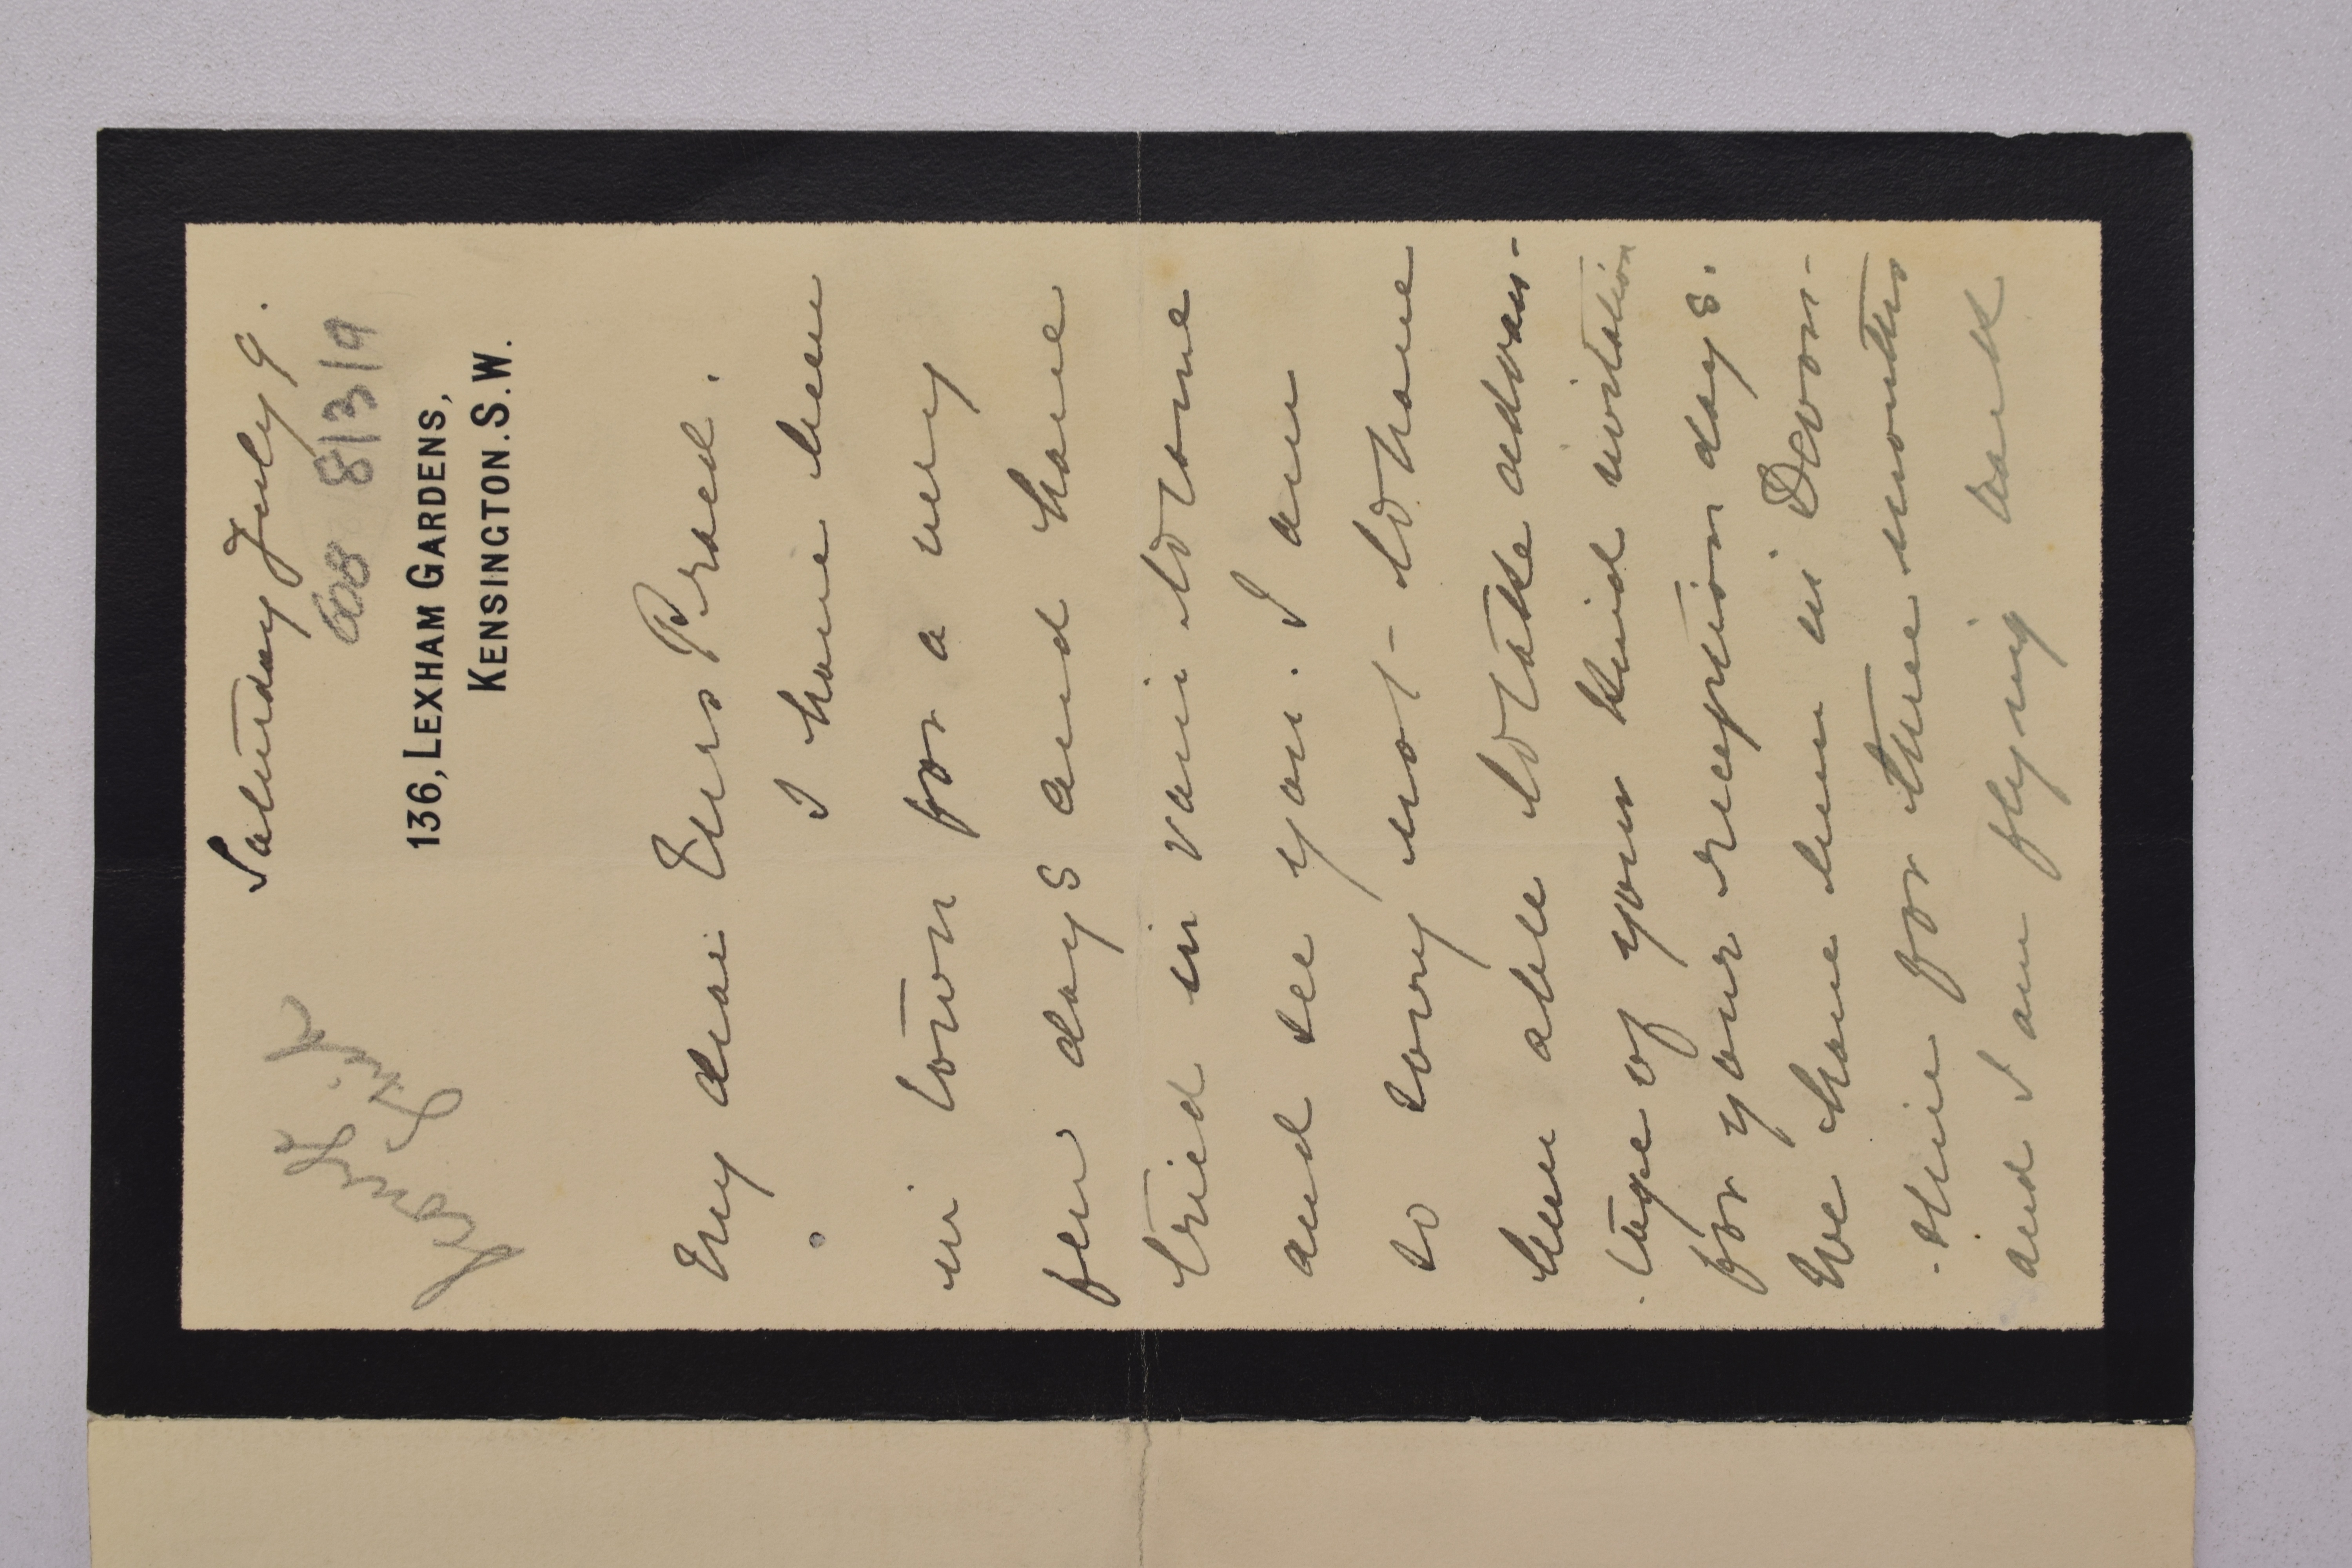 Saturday July 9.
8/3/9
136, LEXHAM GARDENS,
KENSINGTON. S. W.
My dear Mrs Praed.
I have been
in town for a very
few days and have
tried in vain to come
and see you. I am
so sorry not to have
been able to take advan-
tage of your kind invitation
for your reception days.
We have been in Devon-
shire for three months
and I am flying back